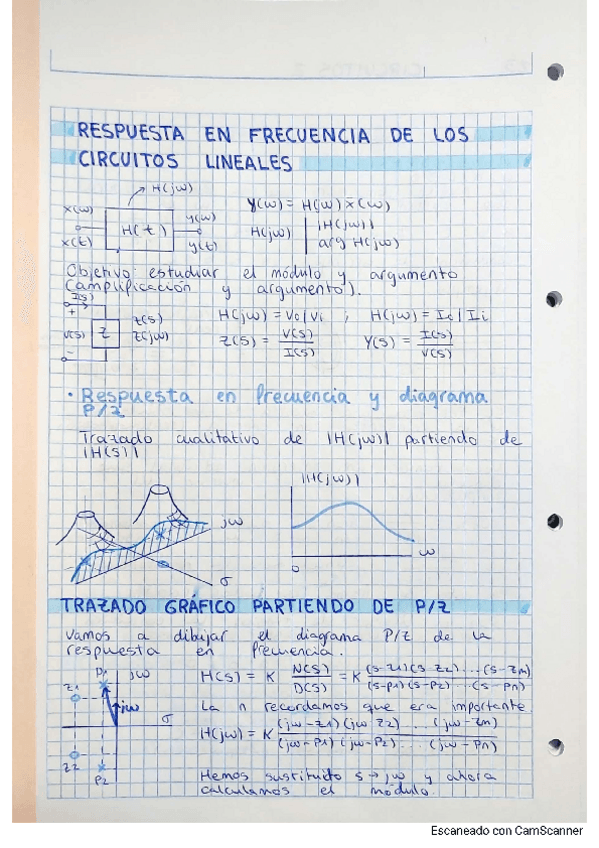 RESPUESTA EN FRECUENCIA DE LOS
CIRCUITOS LINEALES
H(jω)
x(ω)
x(t)
H(t)
y(ω)
y(t)
Y(ω) = H(ω) x(ω)
H(jω)
|H(jω)|
arg H(jω)
Objetivo: estudiar el módulo y argumento
(amplificación y argumento).
I(s)
+
V(s)
-
Z
Z(s)
Z(jω)
H(jω) = Vo/Vi ; H(jω) = Io/Ii
Z(s) = V(s)/I(s)
Y(s) = I(s)/V(s)
• Respuesta en frecuencia y diagrama
P/Z
Trazado cualitativo de |H(jω)| partiendo de
|H(s)|
jω
σ
|H(jω)|
ω
0
TRAZADO GRÁFICO PARTIENDO DE P/Z
Vamos a dibujar el diagrama P/Z de la
respuesta en frecuencia.
P1
jω
Z1
jω
σ
Z2
P2
H(s) = K N(s)/D(s) = K (s-z1)(s-z2)...(s-zm)/(s-p1)(s-p2)...(s-pn)
La n recordamos que era importante
H(jω) = K (jω-z1)(jω-z2)...(jω-zm)/(jω-p1)(jω-p2)...(jω-pn)
Hemos sustituido s → jω y ahora
calculamos el módulo.
Escaneado con CamScanner